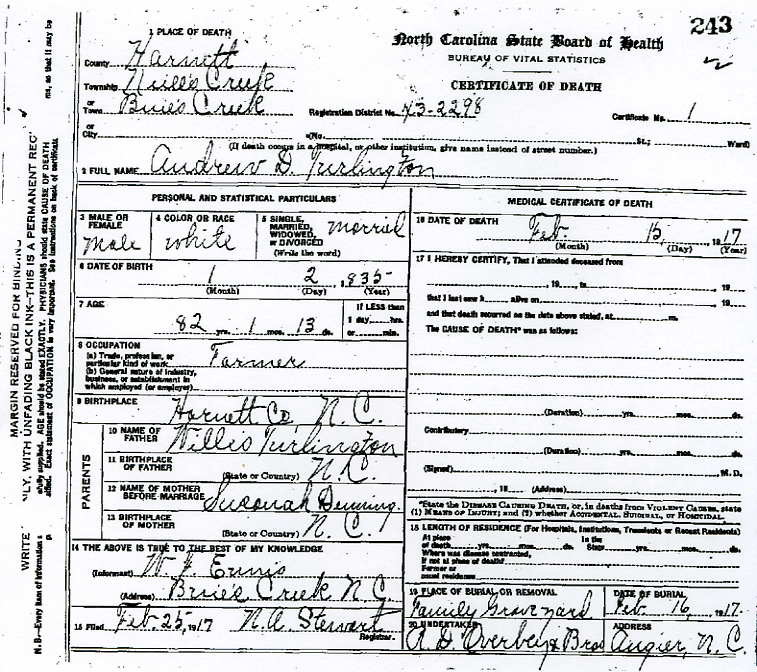 243
North Carolina State Board of Health
BUREAU OF VITAL STATISTICS
CERTIFICATE OF DEATH
1 PLACE OF DEATH
County Harnett
Township Neills Creek
or
Town Buies Creek
Registration District No. 43-2298 Certificate No. 1
or
City (No. St.; Ward)
(If death occurs in a hospital, or other institution, give name instead of street number.)
2 FULL NAME Andrew D. Turlington
PERSONAL AND STATISTICAL PARTICULARS
3 MALE OR FEMALE Male
4 COLOR OR RACE White
5 SINGLE, MARRIED, WIDOWED or DIVORCED (Write the word) Married
6 DATE OF BIRTH 1 2 1835
(Month) (Day) (Year)
7 AGE 82 yrs. 1 mos. 13 ds.
If LESS than 1 day, hrs. or min.
8 OCCUPATION
(a) Trade, profession, or particular kind of work Farmer
(b) General nature of industry, business, or establishment in which employed (or employer)
9 BIRTHPLACE Harnett Co, N.C.
PARENTS
10 NAME OF FATHER Willis Turlington
11 BIRTHPLACE OF FATHER (State or Country) N.C.
12 NAME OF MOTHER BEFORE MARRIAGE Susonah Denning.
13 BIRTHPLACE OF MOTHER (State or Country) N.C.
14 THE ABOVE IS TRUE TO THE BEST OF MY KNOWLEDGE
(Informant) W. J. Ennis
(Address) Buies Creek N.C.
15 Filed Feb 25, 1917 N.A. Stewart
Registrar.
MEDICAL CERTIFICATE OF DEATH
16 DATE OF DEATH Feb. 15, 1917
(Month) (Day) (Year)
17 I HEREBY CERTIFY, That I attended deceased from
, 19 , to , 19
that I last saw h alive on , 19
and that death occurred on the date above stated, at m.
The CAUSE OF DEATH* was as follows:
(Duration) yrs. mos. ds.
Contributory
(Duration) yrs. mos. ds.
(Signed) M.D.
, 19 . (Address)
*State the DISEASE CAUSING DEATH, or, in deaths from VIOLENT CAUSES, state
(1) MEANS OF INJURY; and (2) whether ACCIDENTAL, SUICIDAL, or HOMICIDAL.
18 LENGTH OF RESIDENCE (For Hospitals, Institutions, Transients or Recent Residents)
At place of death yrs. mos. ds. In the State yrs. mos. ds.
Where was disease contracted,
if not at place of death?
Former or
usual residence
19 PLACE OF BURIAL OR REMOVAL Family Graveyard
DATE OF BURIAL Feb 16, 1917.
20 UNDERTAKER A. D. Overby & Bros
ADDRESS Angier, N.C.
MARGIN RESERVED FOR BINDING
WRITE LY, WITH UNFADING BLACK INK—THIS IS A PERMANENT REC
N.B.—Every item of information s ully supplied. AGE should be stated EXACTLY. PHYSICIANS should state CAUSE OF DEATH ms, so that it may be
p ssified. Exact statement of OCCUPATION is very important. See instructions on back of certificate.